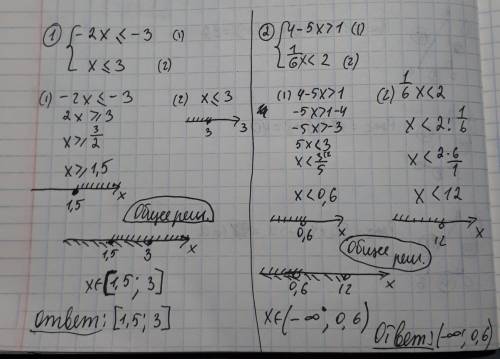 ① { -2x ≤ -3 (1)
x ≤ 3 (2)
(1) -2x ≤ -3
2x ≥ 3
x ≥ 3/2
x ≥ 1,5
1,5 x
(2) x ≤ 3
3 3
Общее реш.
1,5 3 x
x ∈ [1,5; 3]
Ответ: [1,5; 3]
② { 4-5x>1 (1)
1/6 x < 2 (2)
(1) 4-5x>1
-5x>1-4
-5x>-3
5x<3
x<0,6
0,6 x
(2) 1/6 x < 2
x < 2 : 1/6
x < 2·6/1
x < 12
12 x
Общее реш.
0,6 12 x
x ∈ (-∞; 0,6)
Ответ: (-∞; 0,6)